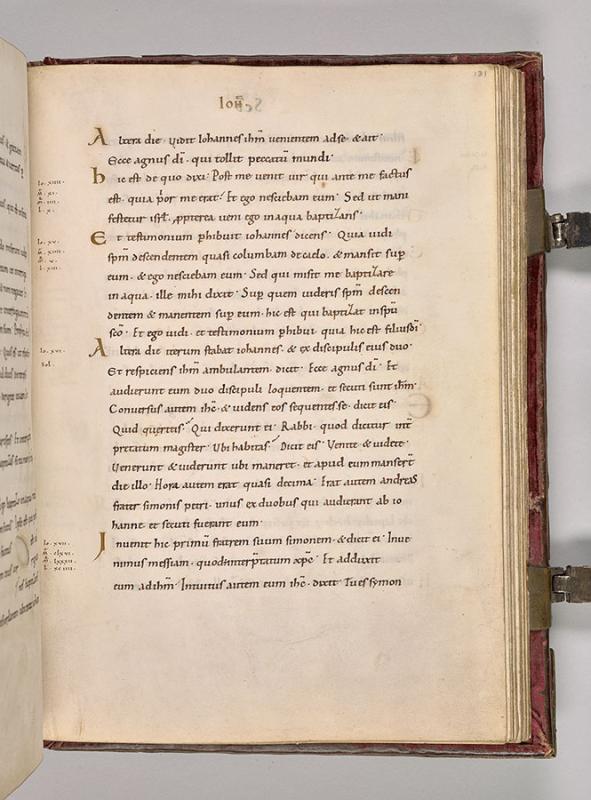 181
Ioh̄
A ltera die · vidit Iohannes ih̄m venientem adse · & ait ·
Ecce agnus dī · qui tollit peccatū mundi ·
h ic est de quo dixi · Post me venit vir qui ante me factus
est · quia p̄or me erat · Et ego nesciebam eum · Sed ut mani
festetur isrl̄ · ꝓpterea veni ego inaqua baptizans ·
E t testimonium phibuit iohannes dicens · Quia vidi
sp̄m descendentem quasi columbam decaelo · & mansit sup̄
eum · & ego nesciebam eum · Sed qui misit me baptizare
in aqua · ille mihi dixit · Sup̄ quem videris sp̄m descen
dentem & manentem sup̄ eum · hic est qui baptizat insp̄u
sc̄o · Et ego vidi · et testimonium phibui · quia hic est filiusdī ·
A ltera die iterum stabat iohannes · & ex discipulis eius duo ·
Et respiciens ih̄m ambulantem · dicit · Ecce agnus dī · Et
audierunt eum duo discipuli loquentem · et secuti sunt ih̄m ·
Conversus autem ihc̄ · & videns eos sequentes se · dicit eis ·
Quid queritis · Qui dixerunt ei · Rabbi · quod dicitur int̄
pretatum magister · Ubi habitas · Dicit eis · Venite & videte ·
Venerunt & viderunt ubi maneret · et apud eum mansert̄
die illo · Hora autem erat quasi decima · Erat autem andreas
frater simonis petri · unus ex duobus qui audierant ab io
hanne · et secuti fuerant eum ·
I nvenit hic primū fratrem suum simonem · & dicit ei · Inve
nimus messiam · quod÷interp̄tatum xpc̄ · Et adduxit
eum adih̄m · Intuitus autem eum ihc̄ · dixit · Tu es symon
Io. XIIII.
Io. XV.
Io. XVI.
Sol.
Io. XVII.